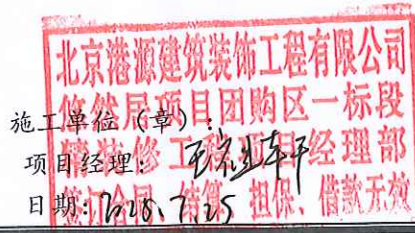 北京港源建筑装饰工程有限公司
悠然居项目团购区一标段
精装修工程项目经理部
签订合同、结算、担保、借款无效
施工单位（章）：
项目经理：
日期：